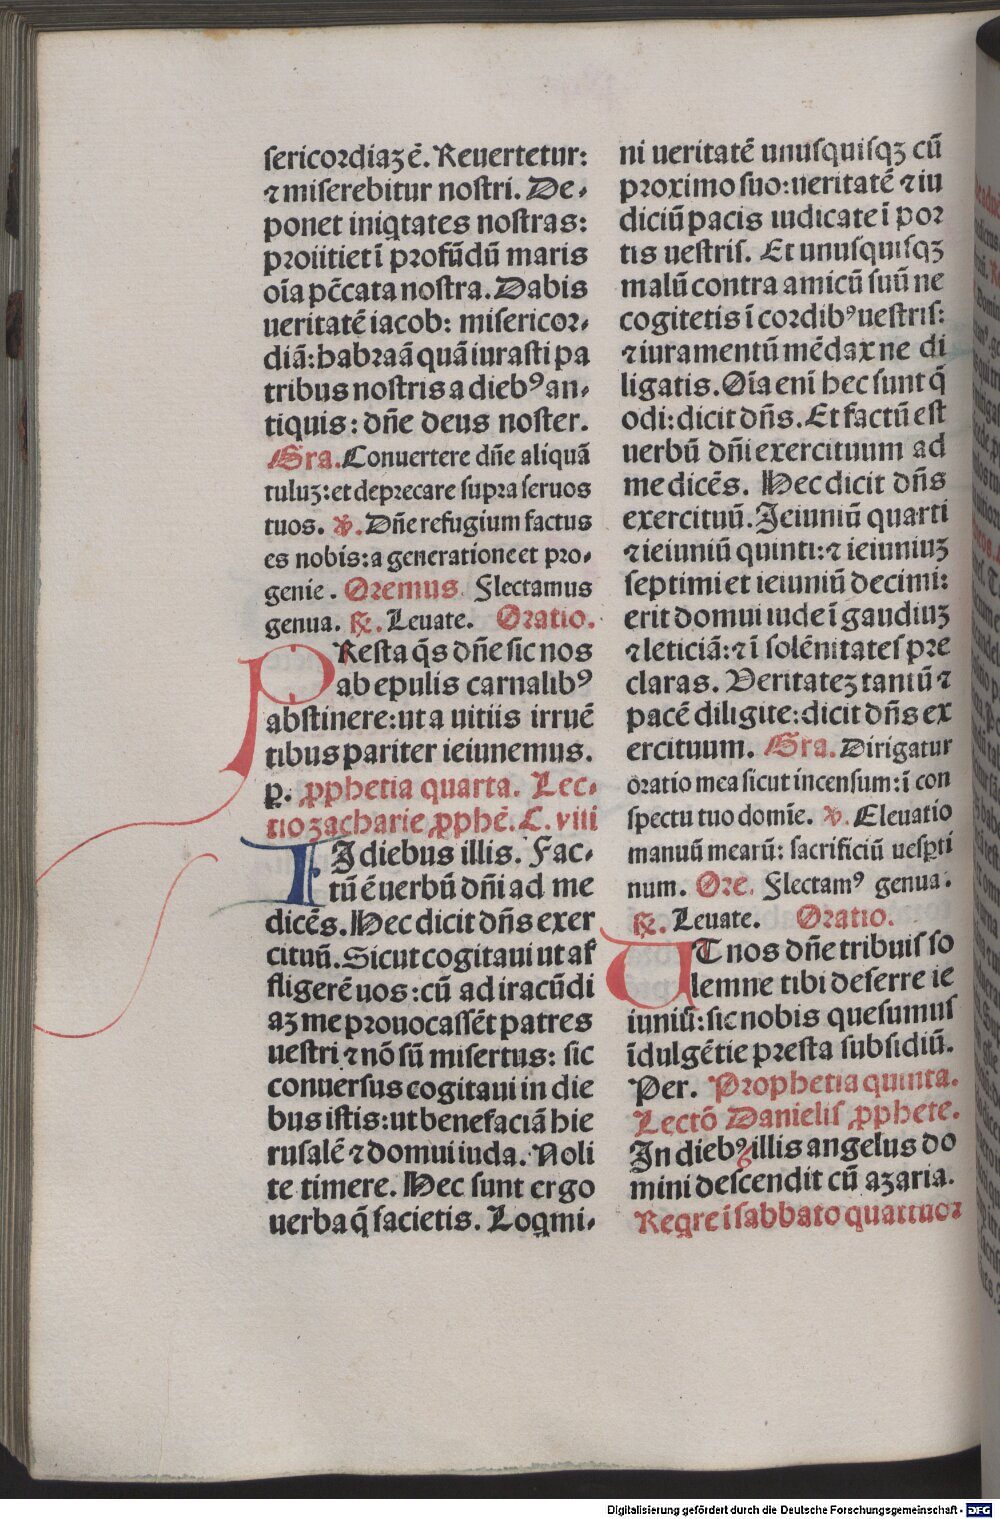 sericordiaꝫ ē. Reuertetur:
⁊ miserebitur nostri. De-
ponet iniqtates nostras:
proiitiet ī profūdū maris
oīa pc̄cata nostra. Dabis
ueritatē iacob: misericor-
diā: habraā quā iurasti pa
tribus nostris a dieb⁹ an-
tiquis: dn̄e deus noster.
Gra. Conuertere dn̄e aliquā
tuluꝫ: et deprecare supra seruos
tuos. ℣. Dn̄e refugium factus
es nobis: a generatione et pro-
genie. Oremus. Flectamus
genua. ℟. Leuate. Oratio.
PResta q̄s dn̄e sic nos
ab epulis carnalib⁹
abstinere: ut a uitiis irruē
tibus pariter ieiunemus.
p. ꝓphetia quarta. Lec-
tio zacharie ꝓphē. C. viii
IN diebus illis. Fac-
tū ē uerbū dn̄i ad me
dicēs. Hec dicit dn̄s exer
cituū. Sicut cogitaui ut af
fligerē uos: cū ad iracūdi
aꝫ me prouocassēt patres
uestri ⁊ nō sū misertus: sic
conuersus cogitaui in die
bus istis: ut benefaciā hie
rusalē ⁊ domui iuda. Noli
te timere. Hec sunt ergo
uerba q̄ facietis. Loqmi-
ni ueritatē unusquisqꝫ cū
proximo suo: ueritatē ⁊ iu
diciū pacis iudicate ī por
tis uestris. Et unusquisqꝫ
malū contra amicū suū ne
cogitetis ī cordib⁹ uestris:
⁊ iuramentū mēdax ne di
ligatis. Oīa enī hec sunt q̄
odi: dicit dn̄s. Et factū est
uerbū dn̄i exercituum ad
me dicēs. Hec dicit dn̄s
exercituū. Ieiuniū quarti
⁊ ieiuniū quinti: ⁊ ieiuniuꝫ
septimi et ieiuniū decimi:
erit domui iude ī gaudiuꝫ
⁊ leticiā: ⁊ ī solēnitates pre
claras. Veritateꝫ tantū ⁊
pacē diligite: dicit dn̄s ex
ercituum. Gra. Dirigatur
oratio mea sicut incensum: ī con
spectu tuo domīe. ℣. Eleuatio
manuū mearū: sacrificiū uesꝑti
num. Ore. Flectam⁹ genua.
℟. Leuate. Oratio.
UT nos dn̄e tribuis so
lemne tibi deferre ie
iuniū: sic nobis quesumus
īdulgētie presta subsidiū.
Per. Prophetia quinta.
Lectō Danielis ꝓphete.
In dieb⁹ illis angelus do
mini descendit cū azaria.
Reqre ī sabbato quattuor
Digitalisierung gefördert durch die Deutsche Forschungsgemeinschaft - DFG